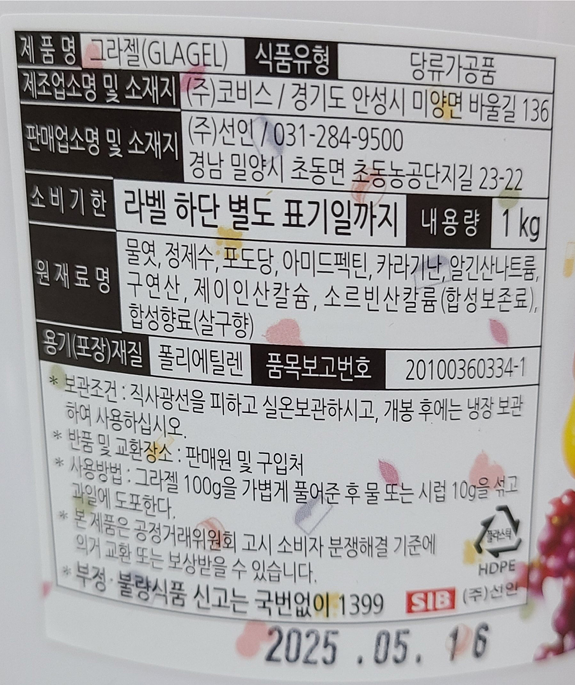 제 품 명 그라젤(GLAGEL) 식품유형 당류가공품
제조업소명 및 소재지 (주)코비스 / 경기도 안성시 미양면 바울길 136
판매업소명 및 소재지 (주)선인 / 031-284-9500
경남 밀양시 초동면 초동농공단지길 23-22
소 비 기 한 라벨 하단 별도 표기일까지 내 용 량 1 kg
원 재 료 명 물엿, 정제수, 포도당, 아미드펙틴, 카라기난, 알긴산나트륨,
구연산, 제이인산칼슘, 소르빈산칼륨(합성보존료),
합성향료(살구향)
용기(포장)재질 폴리에틸렌 품목보고번호 20100360334-1
* 보관조건 : 직사광선을 피하고 실온보관하시고, 개봉 후에는 냉장 보관
하여 사용하십시오.
* 반품 및 교환장소 : 판매원 및 구입처
* 사용방법 : 그라젤 100g을 가볍게 풀어준 후 물 또는 시럽 10g을 섞고
과일에 도포한다.
* 본 제품은 공정거래위원회 고시 소비자 분쟁해결 기준에
의거 교환 또는 보상받을 수 있습니다.
플라스틱
HDPE
* 부정·불량식품 신고는 국번없이 1399 SIB (주)선인
2025 .05. 16